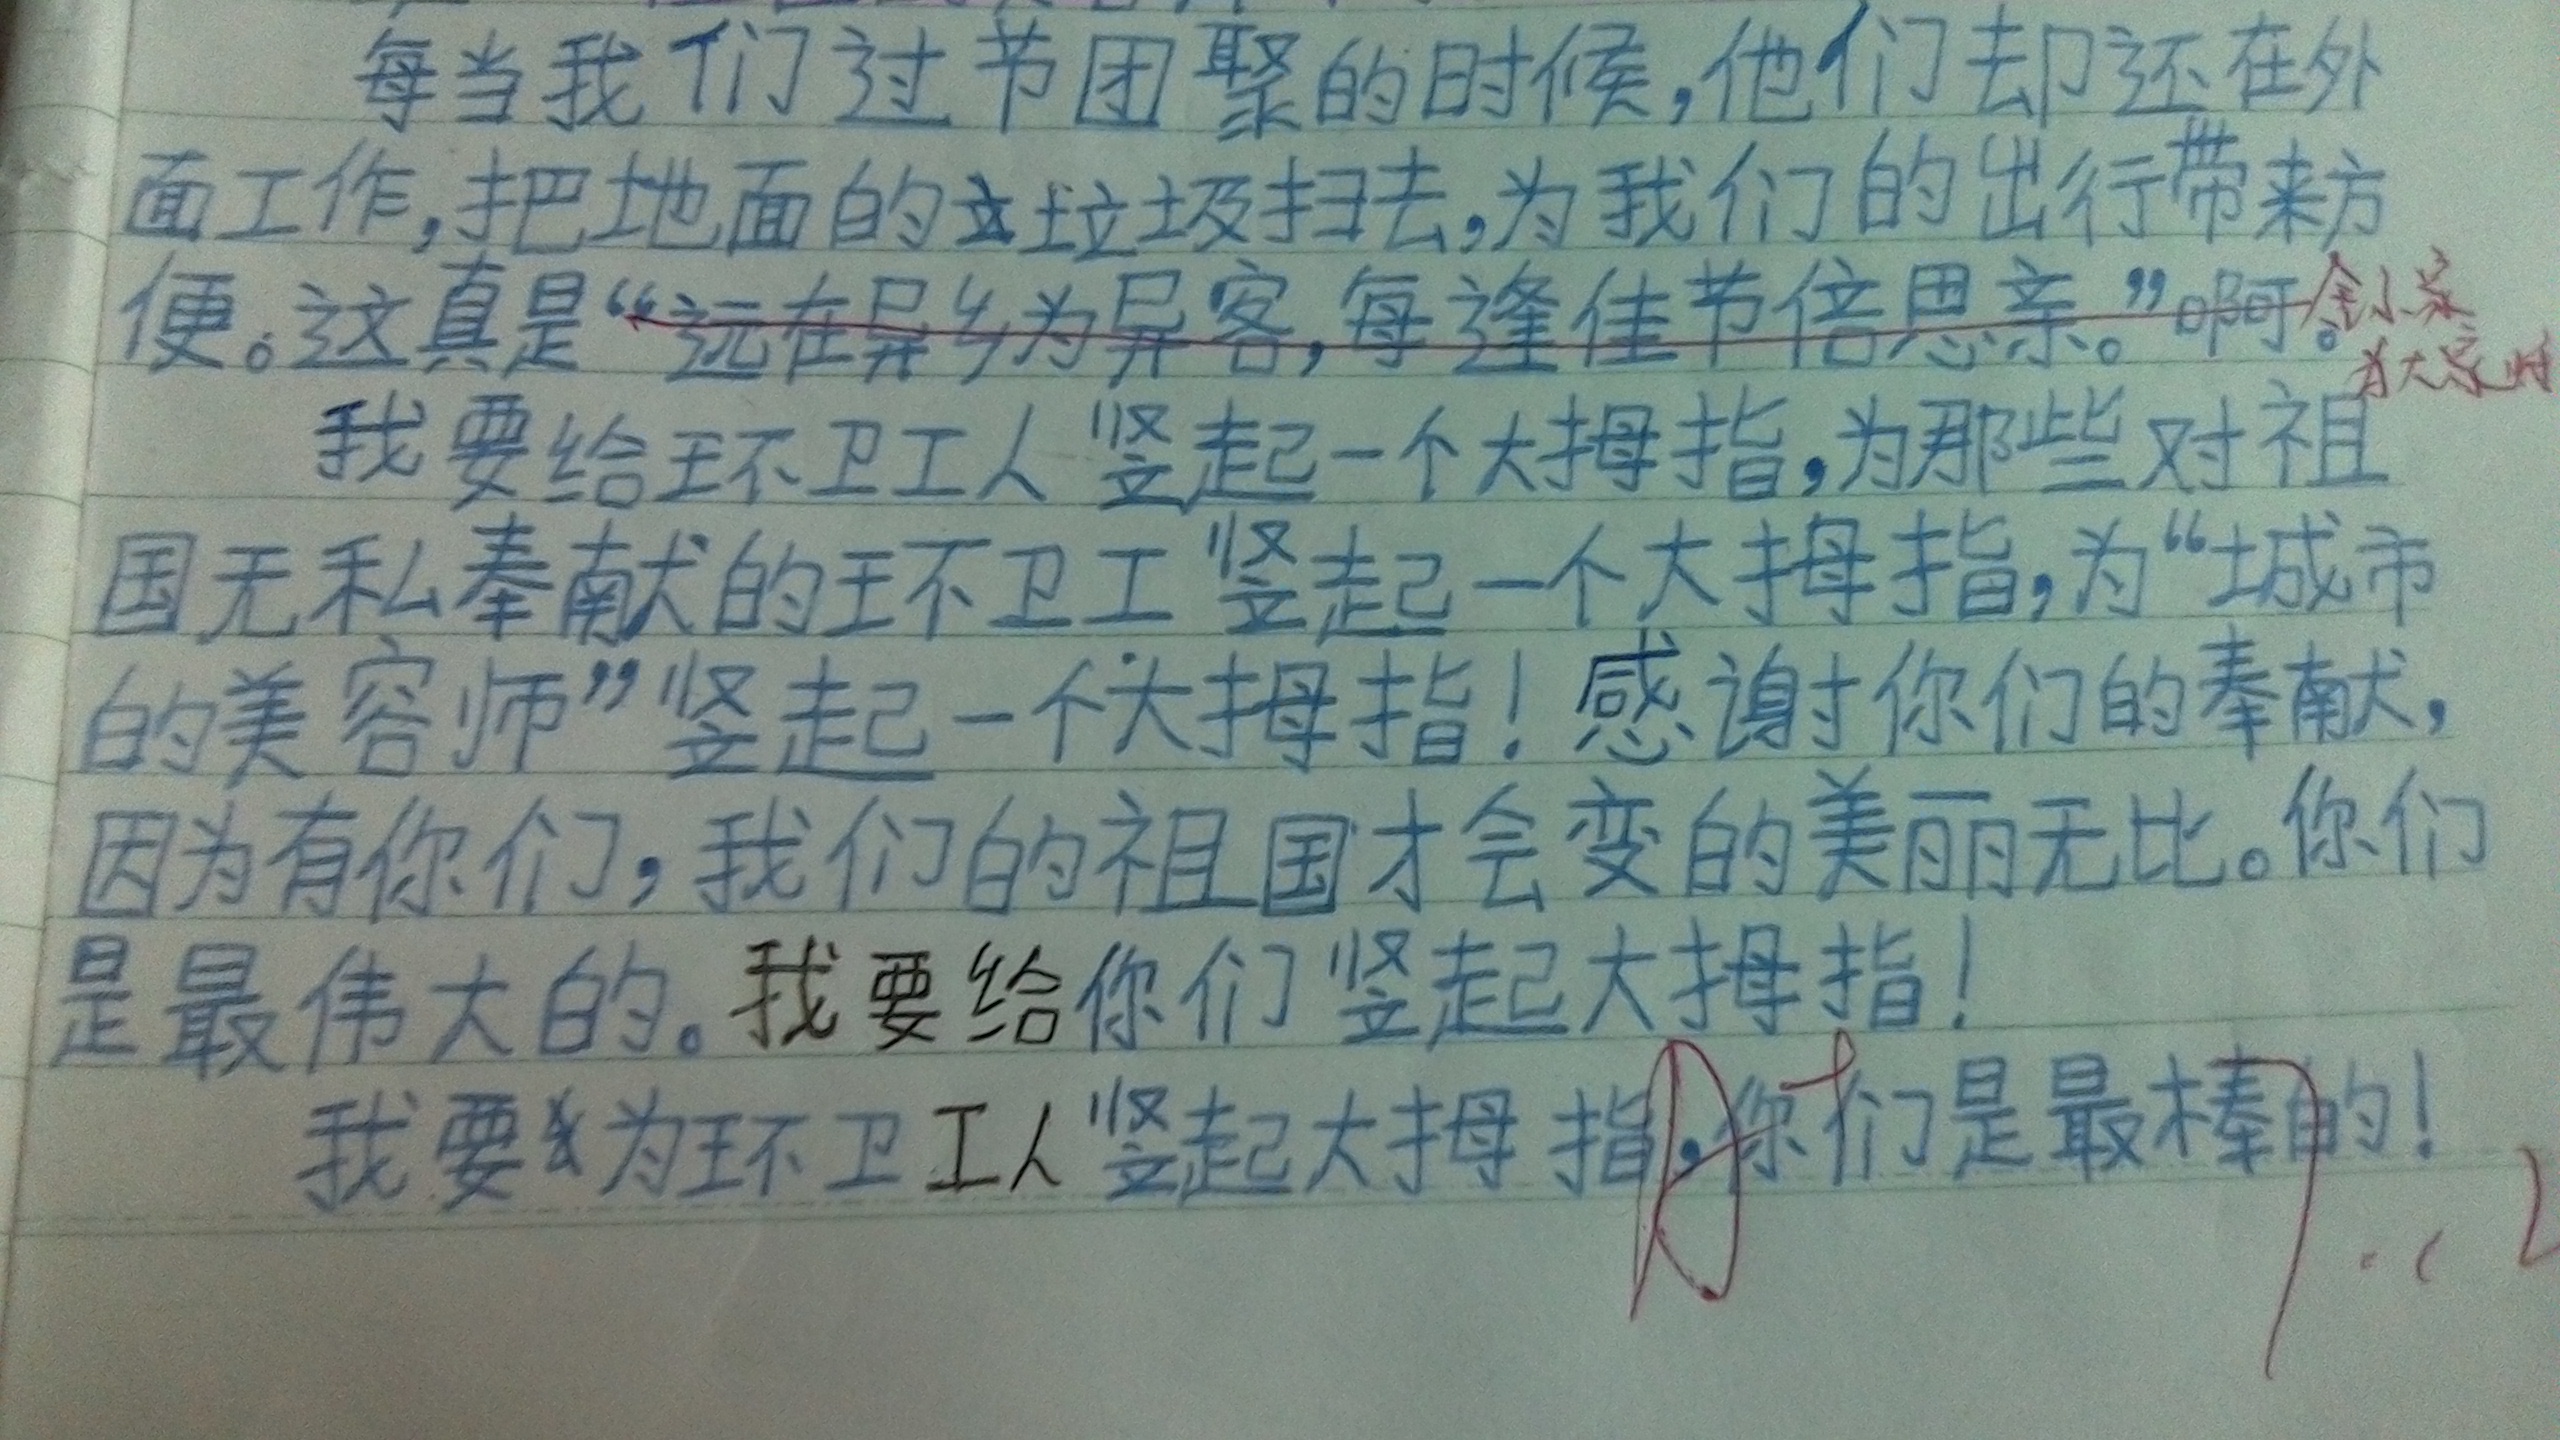 每当我们过节团聚的时候,他们却还在外
面工作,把地面的垃圾扫去,为我们的出行带来方
便。这真是“远在异乡为异客,每逢佳节倍思亲。”啊。
舍小家
为大家啊
我要给环卫工人竖起一个大拇指,为那些对祖
国无私奉献的环卫工竖起一个大拇指,为“城市
的美容师”竖起一个大拇指!感谢你们的奉献,
因为有你们,我们的祖国才会变的美丽无比。你们
是最伟大的。我要给你们竖起大拇指!
我要为环卫工人竖起大拇指,你们是最棒的!
A+